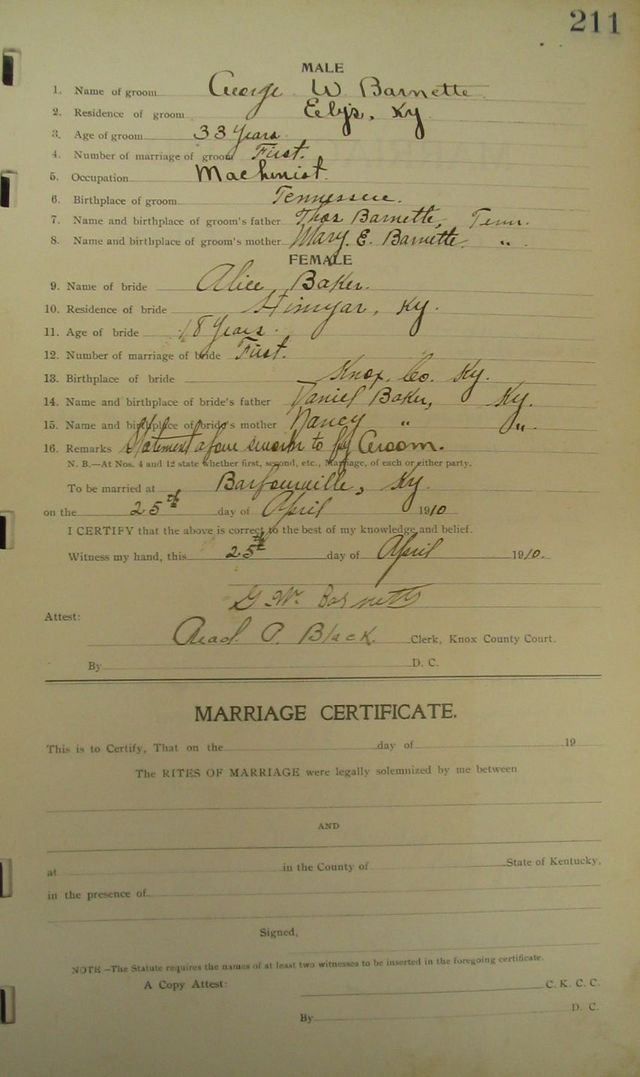 211
MALE
1. Name of groom George W Barnette
2. Residence of groom Elys, Ky
3. Age of groom 33 Years
4. Number of marriage of groom First.
5. Occupation Machinist
6. Birthplace of groom Tennessee.
7. Name and birthplace of groom's father Thos Barnette, Tenn.
8. Name and birthplace of groom's mother Mary. E. Barnette "
FEMALE
9. Name of bride Alice Baker.
10. Residence of bride Himyar, Ky.
11. Age of bride 18 Years.
12. Number of marriage of bride First.
13. Birthplace of bride Knox. Co. Ky.
14. Name and birthplace of bride's father Daniel Baker, Ky.
15. Name and birthplace of bride's mother Nancy " "
16. Remarks Statement above sworn to by Groom.
N. B.—At Nos. 4 and 12 state whether first, second, etc., marriage, of each or either party.
To be married at Barbourville, Ky.
on the 25th day of April 1910
I CERTIFY that the above is correct to the best of my knowledge and belief.
Witness my hand, this 25th day of April 1910.
G. W. Barnette
Attest:
Read P. Black Clerk, Knox County Court.
By D. C.
MARRIAGE CERTIFICATE.
This is to Certify, That on the day of 19
The RITES OF MARRIAGE were legally solemnized by me between
AND
at in the County of State of Kentucky,
in the presence of
Signed,
NOTE—The Statute requires the names of at least two witnesses to be inserted in the foregoing certificate.
A Copy Attest: C. K. C. C.
By D. C.